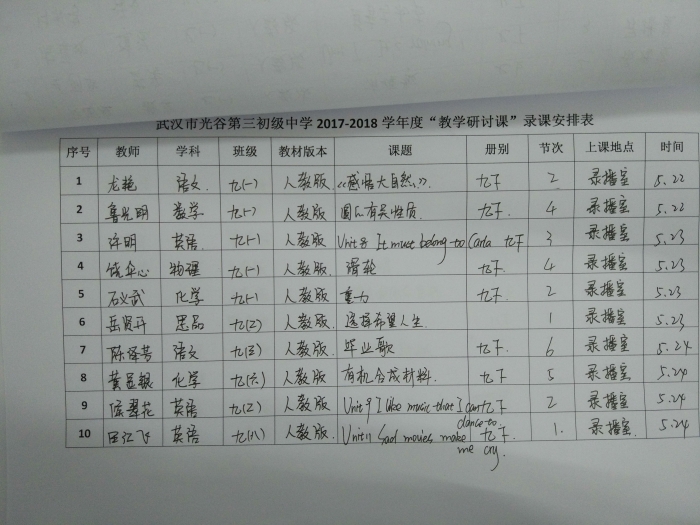 武汉市光谷第三初级中学 2017-2018 学年度“教学研讨课”录课安排表
序号 教师 学科 班级 教材版本 课题 册别 节次 上课地点 时间
1 龙艳 语文 九(一) 人教版 《感悟大自然》 九下 2 录播室 5.22
2 鲁光明 数学 九(一) 人教版 圆的有关性质 九下 4 录播室 5.22
3 许明 英语 九(一) 人教版 Unit 8 It must belong to Carla 九下 3 录播室 5.23
4 心 物理 九(一) 人教版 滑轮 九下 4 录播室 5.23
5 石义武 化学 九(一) 人教版 九下 2 录播室 5.23
6 岳贤丹 思品 九(三) 人教版 选择希望人生 1 录播室 5.23
7 陈泽芳 语文 九(五) 人教版 毕业歌 九下 6 录播室 5.24
8 黄 银 化学 九(六) 人教版 有机合成材料 九下 5 录播室 5.24
9 翠花 英语 九(三) 人教版 Unit 9 I like music that I can dance to 九下 2 录播室 5.24
10 田江飞 英语 九(八) 人教版 Unit 11 Sad movies make me cry. 九下 1. 录播室 5.24